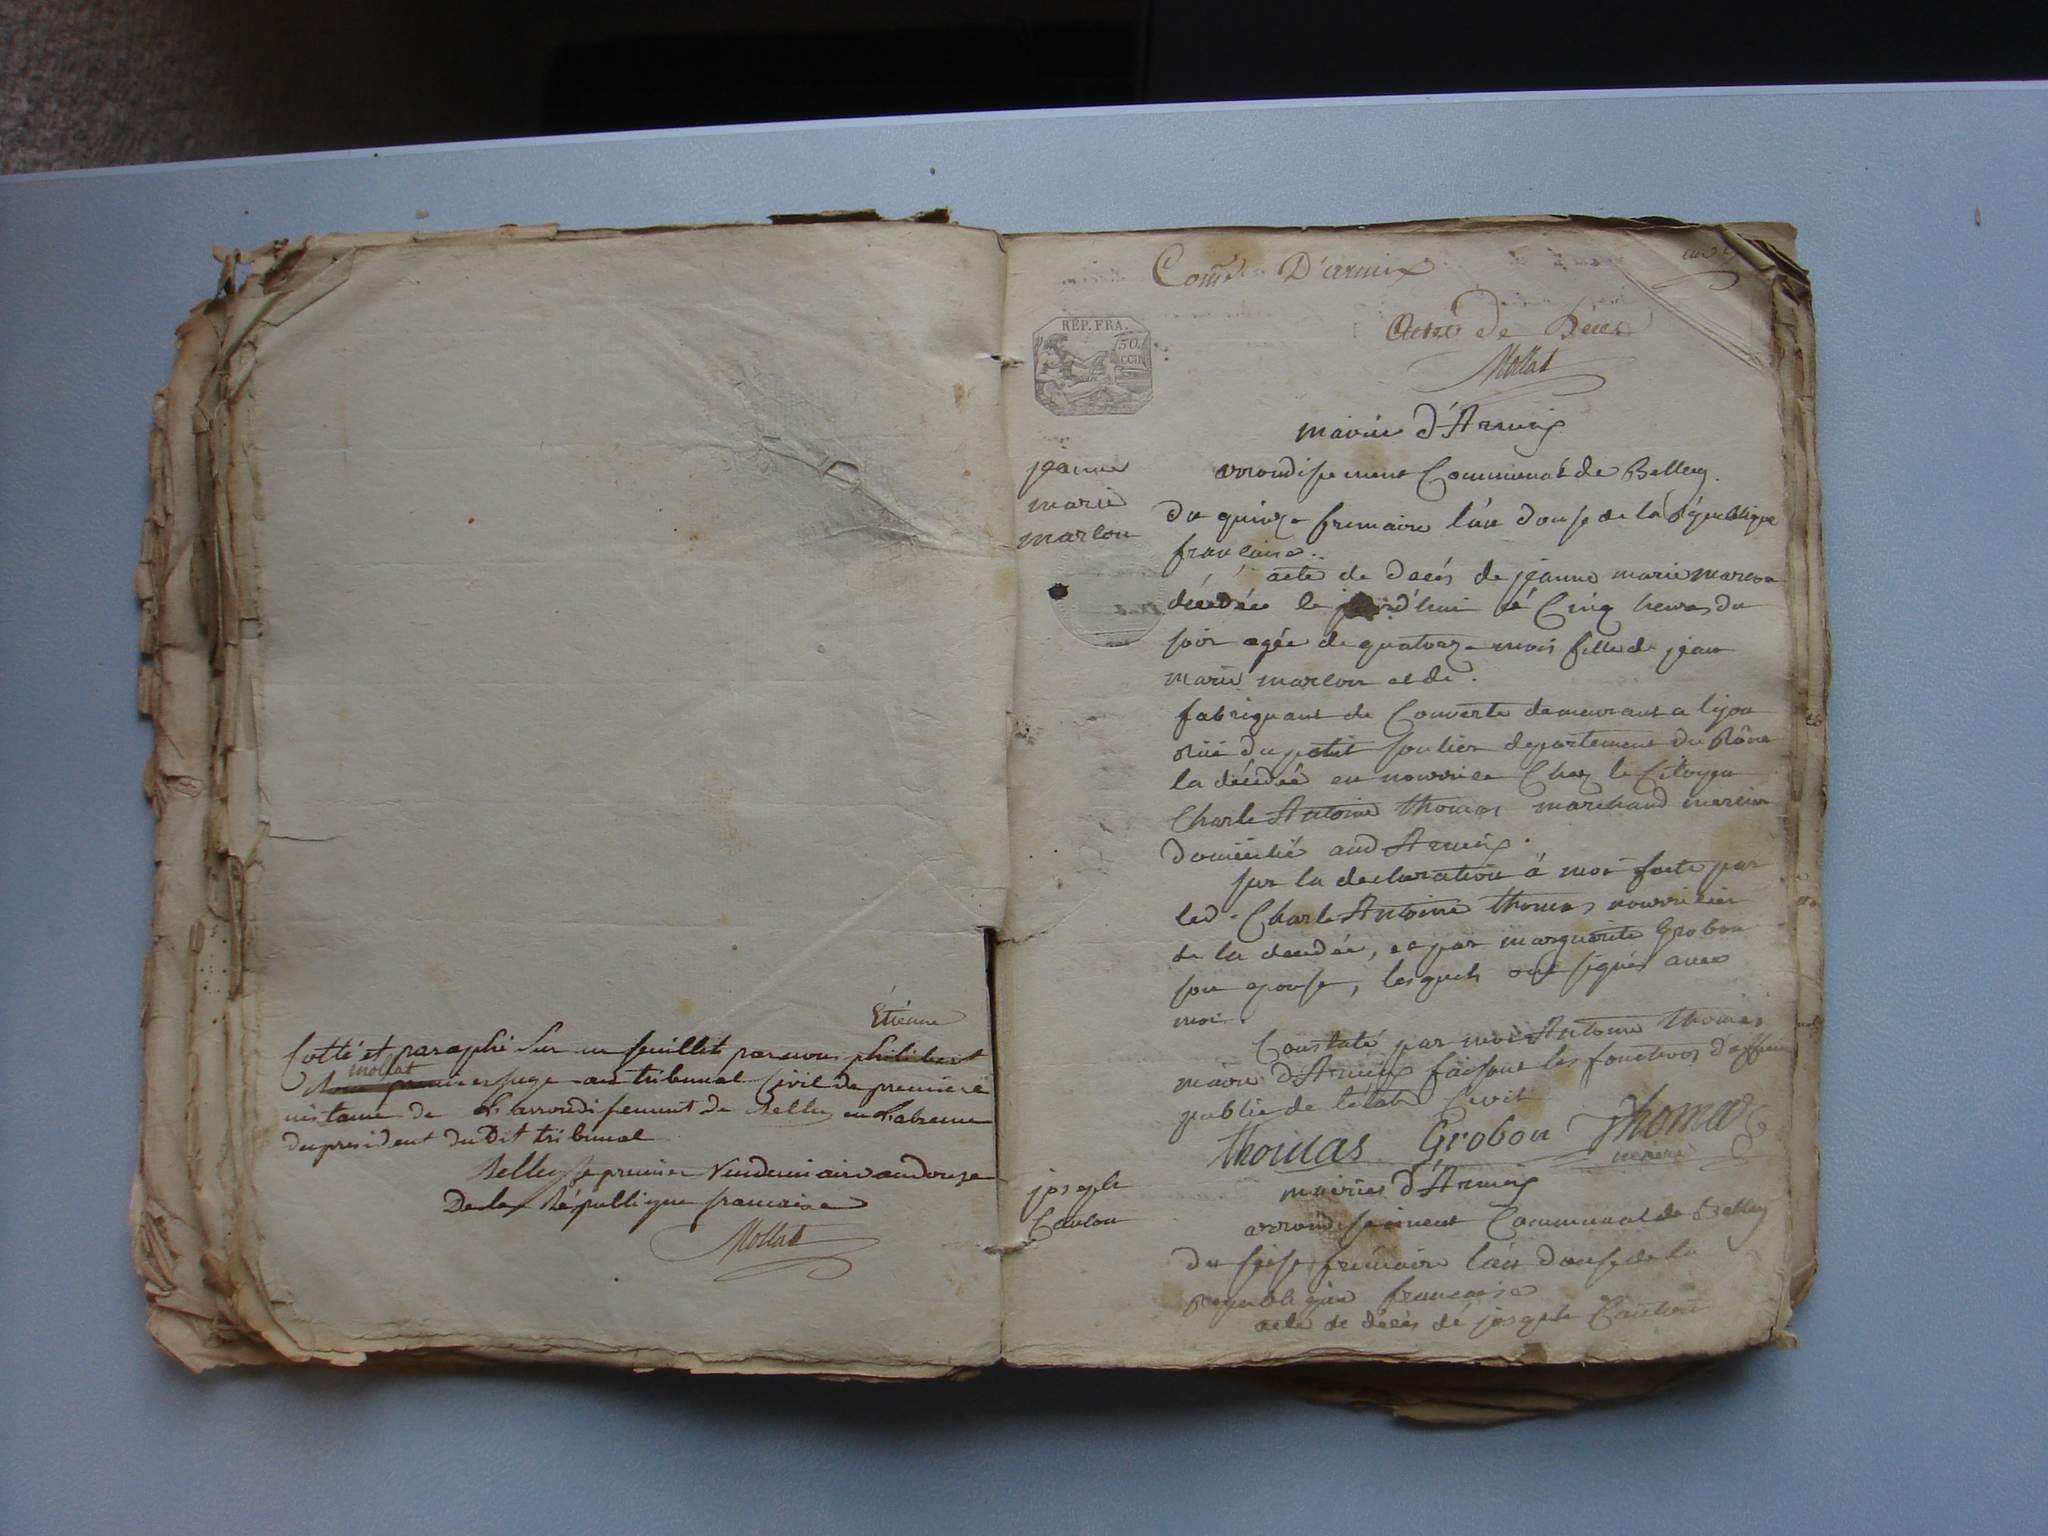 Étienne
Cotté et paraphé sur un feuillet par nous philibert
mollat
premier juge au tribunal Civil de premiere
instance de L'arrondissement de Belley en L'absence
du president du Dit tribunal
Belley le premier Vendemiaire an douze
De la République francaise
Mollat
Comne D'armix
Acte de Décés
Mollat
REP. FRA.
50.
CCI
mairie d'Armix
arrondissement Communal de Belley.
jeanne
marie
marcon
du quinze frimaire l'an douse de la République
française..
acte de decés de jeanne marie marcon
décédée le jourd'hui à Cinq heures du
soir agée de quatorze mois fille de jean
marie marcon et de.
fabriquant de Couverte demeurant a lyon
rüe du petit soulier departement du Rône
la décédée en nourrice Chez le Citoyen
Charle Antoine thomas marchand mercier
domicilié aud Armix.
sur la declaration à moi faite par
led. Charle Antoine thomas nourricier
de la decedée, et par marguerite Grobon
son epouse, lesquels ont signés avec
moi.
Constaté par moi Antoine thomas
maire d'Armix faisant les fonctions d'officier
public de l'état Civil
thomas Grobon Thomas
maire
joseph
Caulon
mairie d'Armix
arrondissement Communal de Belley
du seise frimaire l'an douse de la
Republique francaise
acte de décés de joseph